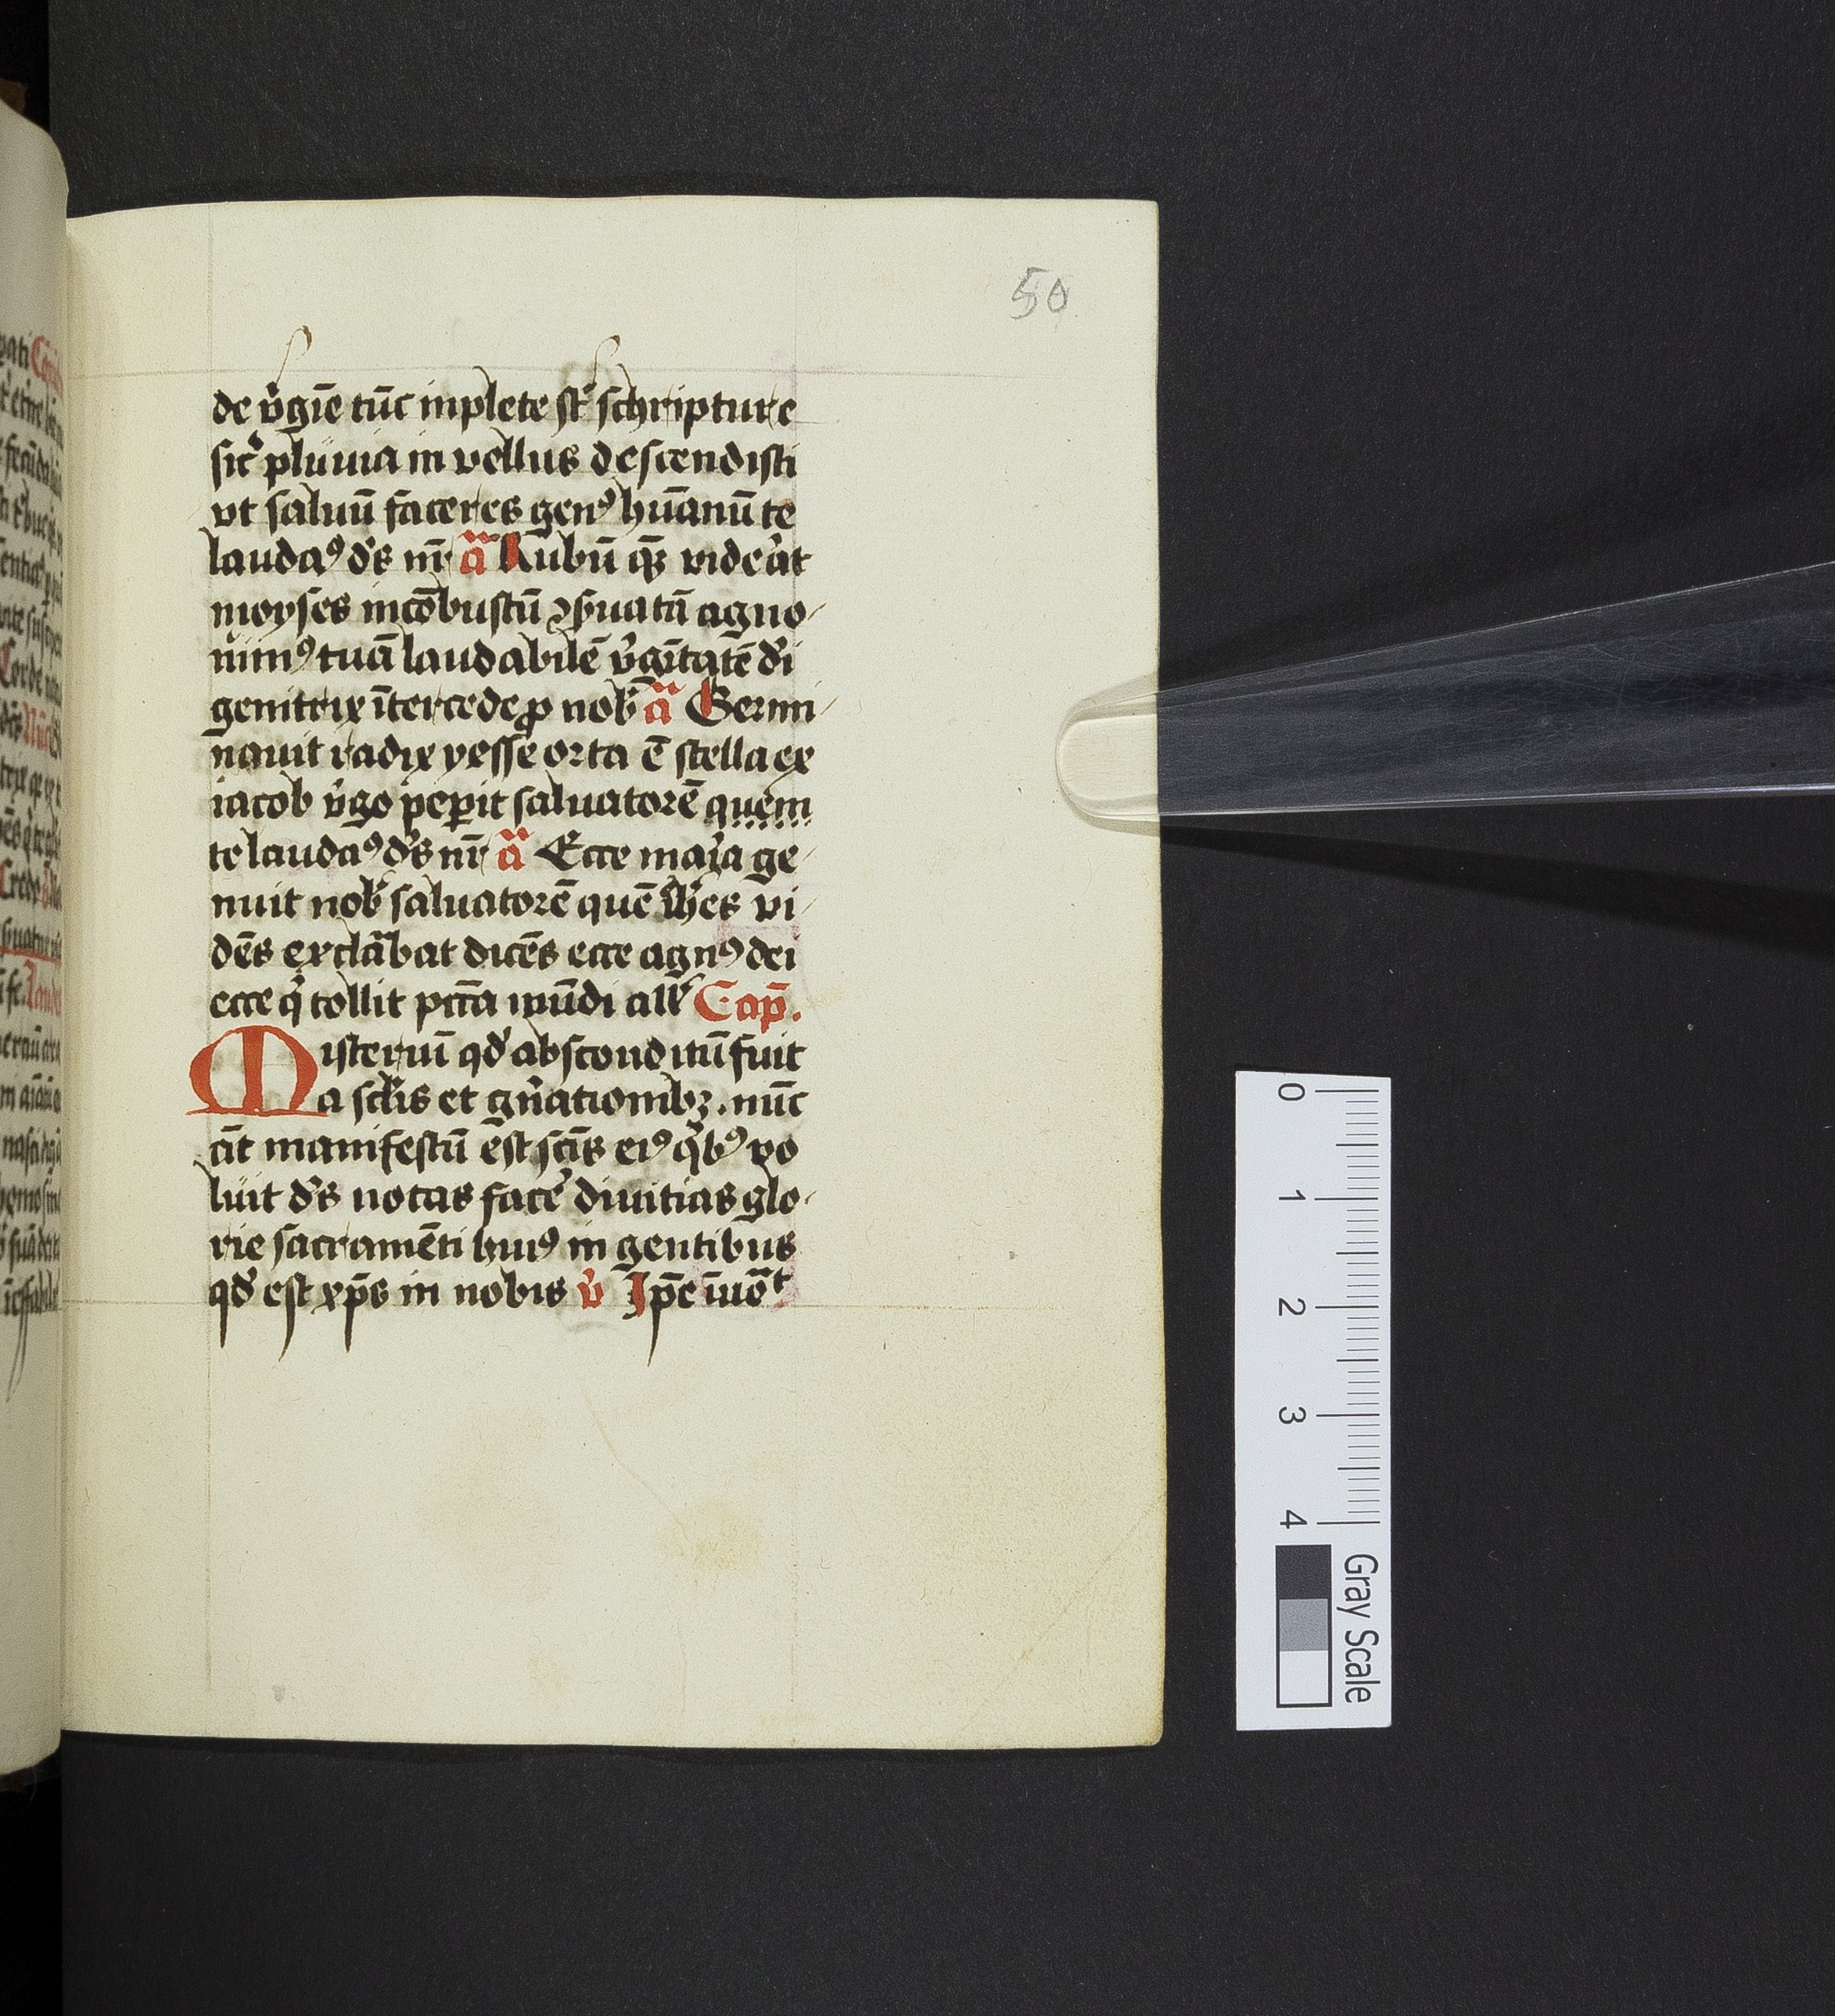 50
de v̓gīe tūc inplete st̄ schripture
sic̓ pluuia in vellus descendisti
vt saluū faceres genꝰ hūanū te
laudaꝰ ds̓ nr̄ ā Rubū qȝ videat̓
moyses incōbustū ꝯſ̓uatū agno
uimꝰ tuā laudabilē v̓gītatē di̓
genitrix īntercede ꝓ nob̓ ā Germi
nauit radix yesse orta ē stella ex
iacob v̓go peꝑit saluatorē quem
te laudaꝰ ds̓ nr̄ ā Ecce mar̓a ge
nuit nob̓ saluatorē quē ioh̓es vi
dēs exclābat dicēs ecce agnꝰ dei
ecce q̓ tollit pctā mūdi all̓ Cap̄.
Misteriuī qd̓ absconditū fuit
a scl̓is et gn̄ationibȝ. nūc
āt manifestū ēst sctīs eiꝰ q̓bꝰ vo
luit ds̓ notas face̓ diuitias glo
rie sacramēti huiꝰ in gentibus
qd̓ est xp̄s in nobis v̓ Ip̄e īuōt
0
1
2
3
4
Gray Scale